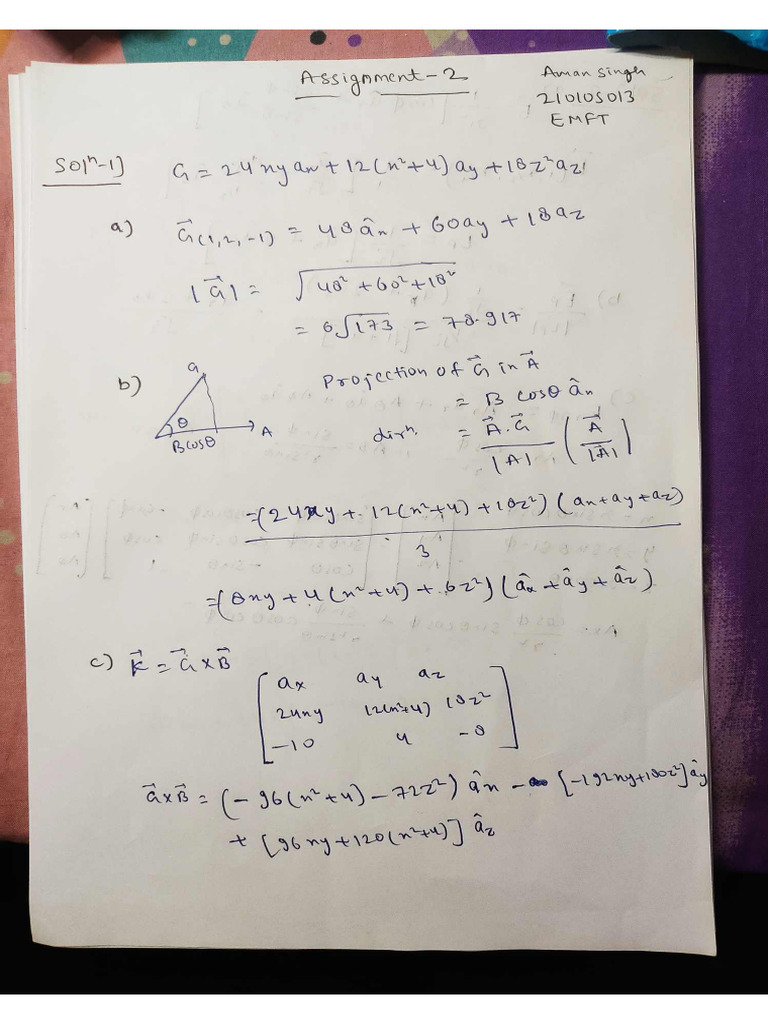 Assignment-2
Aman Singh
21010S013
EMFT
Solⁿ-1]
G = 24xyax + 12(x²+4)ay + 18z²az
a) G⃗(1,2,-1) = 48âx + 60ay + 18az
|G⃗| = √(48² + 60² + 18²)
= 6√173 = 78.917
b) G θ A Bcosθ
Projection of G⃗ in A⃗
dirⁿ. = B cosθ âx
= A⃗.G⃗/|A| (A⃗/|A⃗|)
=(24xy + 12(x²+4) + 18z²)(ax+ay+az)/3
=(8xy + 4(x²+4) + 6z²)(âx + ây + âz)
c) K⃗ = G⃗ x B⃗
[ax ay az
24xy 12(x²+4) 18z²
-10 4 -8]
G⃗xB⃗ = (-96(x²+4) - 72z²) âx - [-192xy+180z²]ây
+ [96xy+120(x²+4)] âz